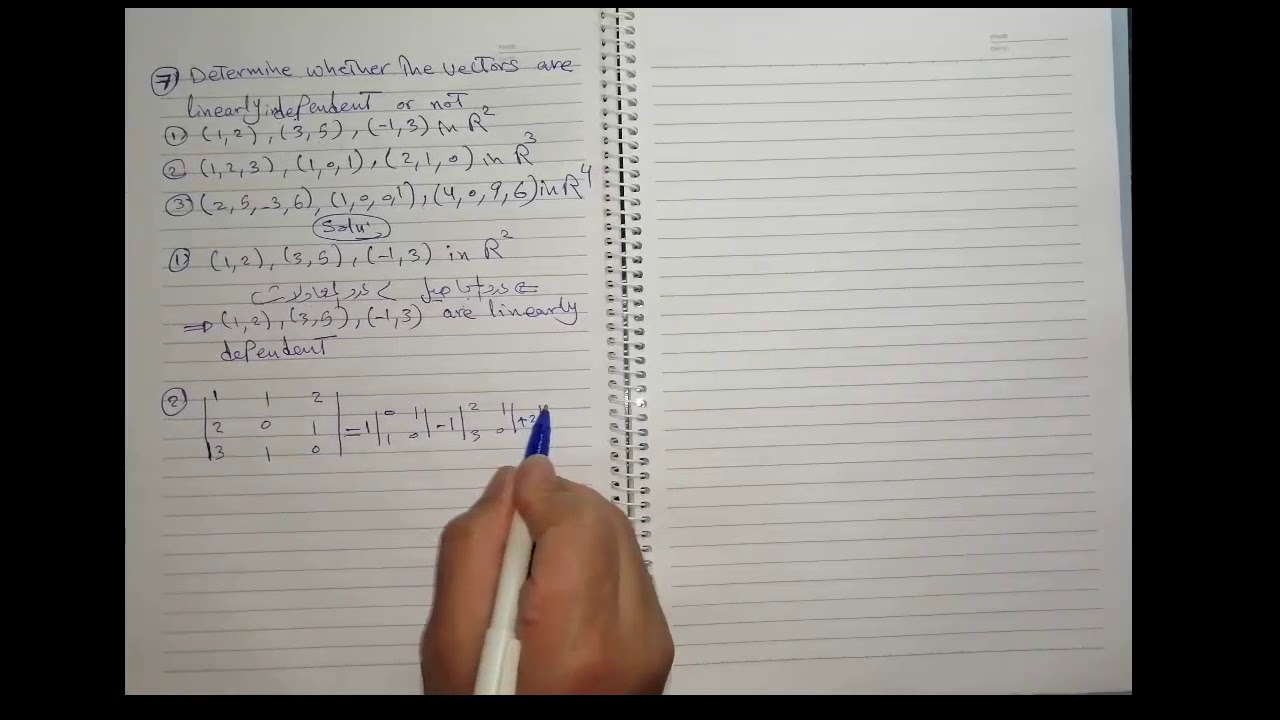 7 Determine whether the vectors are
linearly independent or not
① (1,2), (3,5), (-1,3) in R²
② (1,2,3), (1,0,1), (2,1,0) in R³
③ (2,5,-3,6), (1,0,0,1), (4,0,9,6) in R⁴
Solu.
① (1,2), (3,5), (-1,3) in R²
⇐ عدد المجاهيل > عدد المعادلات
⇒ (1,2), (3,5), (-1,3) are linearly
dependent
② | 1 1 2 |
| 2 0 1 | = 1 | 0 1 | - 1 | 2 1 | + 2
| 3 1 0 | | 1 0 | | 3 0 |